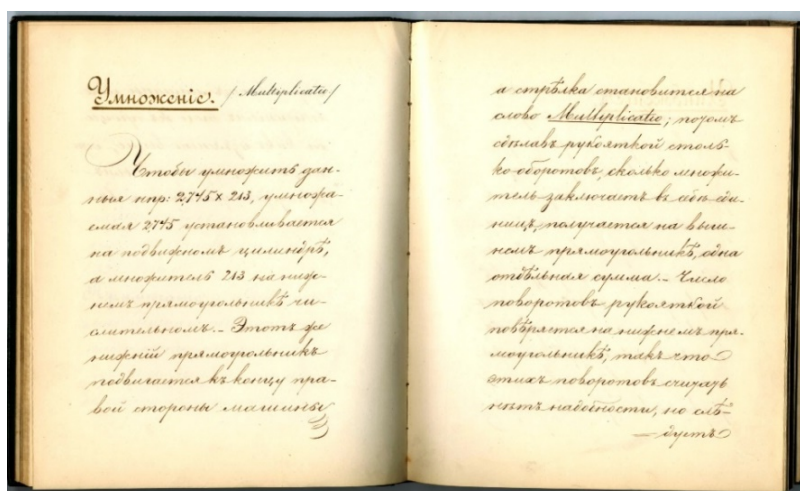 Умноженіе. /Multiplicatio/
Чтобы умножить дан-
ныя нпр: 2,745 x 213, умножа-
емая 2,745 установливается
на подвижномъ цилиндрѣ,
а множитель 213 на ниж-
немъ прямоугольникѣ чи-
слительномъ. – Этотъ же
нижній прямоугольникъ
подвигается къ концу пра-
вой стороны машины
а стрѣлка становится на
слово Multiplicatio; потомъ
сдѣлавъ рукояткой столь-
ко оборотовъ, сколько множи-
тель заключаетъ въ себѣ еди-
ницъ, получается на выш-
немъ прямоугольникѣ, одна
отдѣльная сумма. – Число
поворотовъ рукояткой
повѣряется на нижнемъ пря-
моугольникѣ, такъ что
этихъ поворотовъ считать
нѣтъ надобности, но слѣ-
– дуетъ